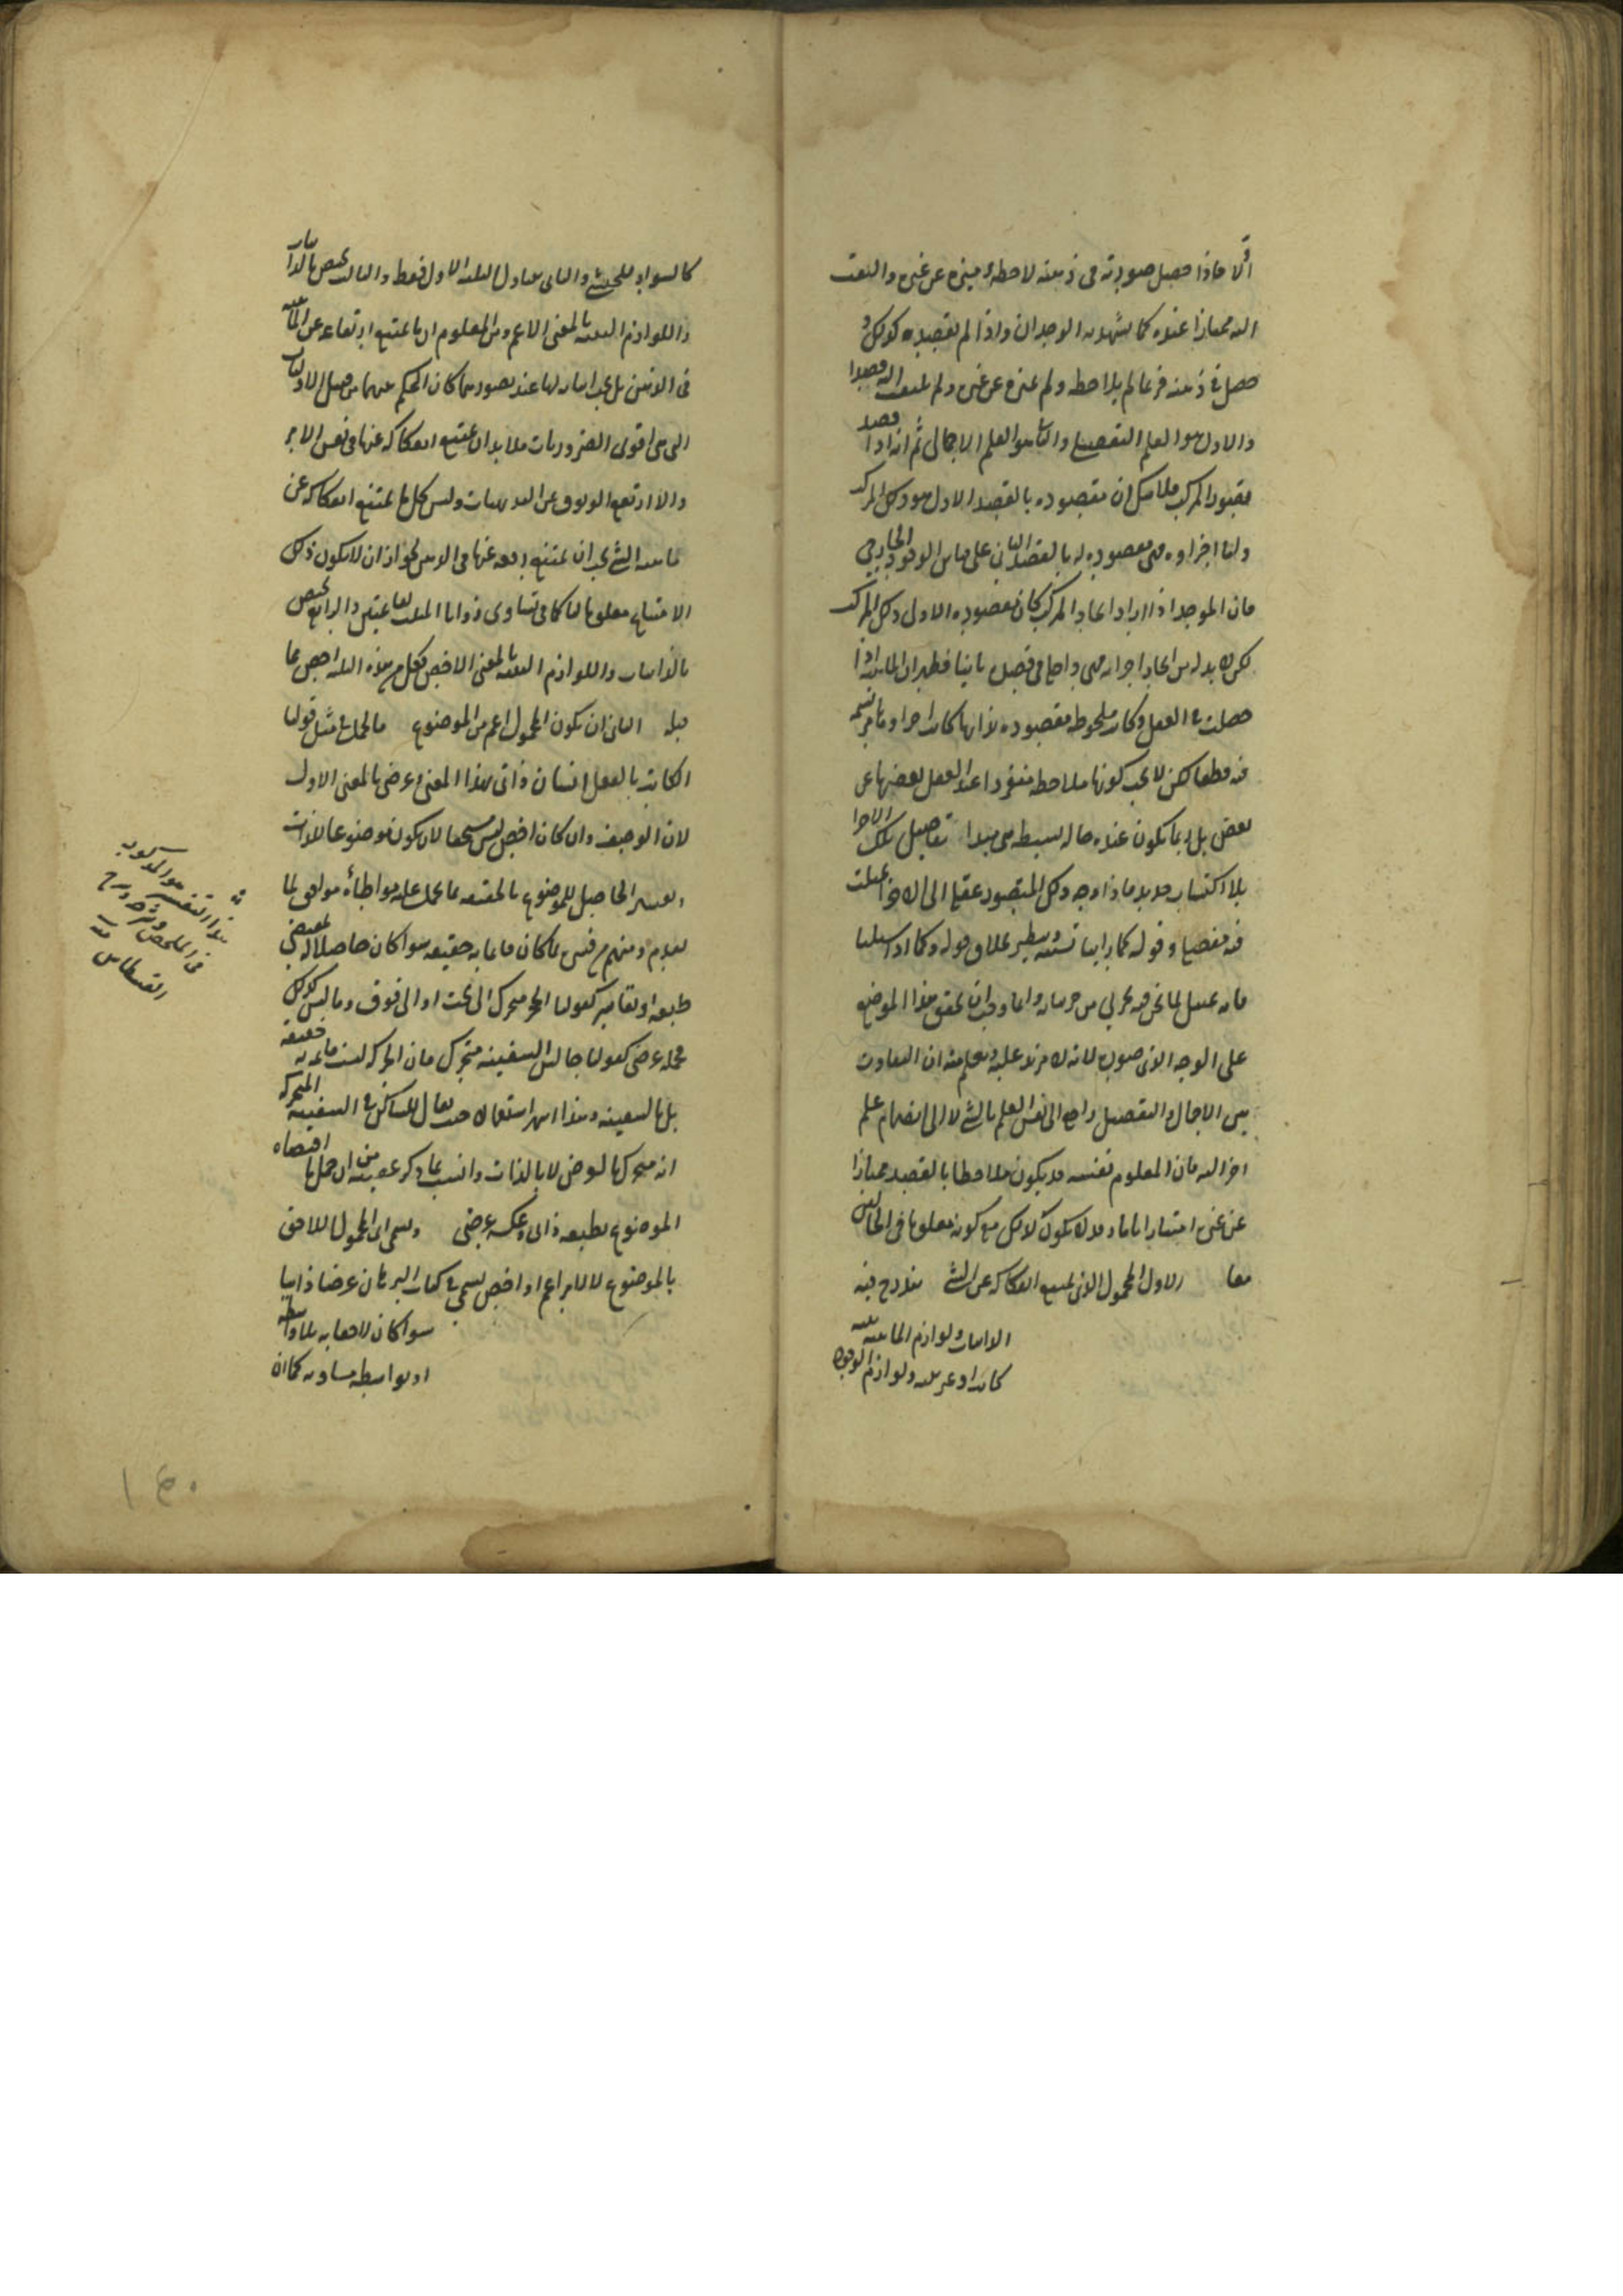 اولا فاذا حصل صورته فى ذهنه لاحظه وميزه عن غيره والتفت
اليه ممتازا عنده كما يشهد به الوجدان واذا لم يقصده كذلك و
حصل فى ذهنه فربما لم يلاحظه ولم يميزه عن غيره ولم يلتفت اليه قصدا
والاول هو العلم التفصيلى والثانى هو العلم الاجمالى ثم انه اذا قصد
تصور المركب فلا شك ان مقصوده بالقصد الاول هو ذلك المركب
واما اجزاؤه فهى مقصودة له بالقصد الثانى على قياس الوجود الخارجى
فان الموجد اذا اراد ايجاد المركب كان مقصوده الاول ذلك المركب
لكن لا بد له من ايجاد اجزائه فهى داخلة فى قصده ثانيا فظهر ان الماهية اذا
حصلت فى العقل وكانت ملحوظة مقصودة لذاتها كانت اجزاؤها مرتسمة
فيه قطعا لكن لا يجب كونها ملاحظة متفردا عند العقل بعضها عن
بعض بل ربما يكون عنده حالة بسيطة هى مبدأ تفاصيل تلك الاجزاء
بلا اكتساب جديد فاذا وجه ذلك المتصور عقله الى الاجزاء تمثلت
فيه مفصلا وقوله كما رأينا
فانه تمثيل لما نحن فيه بجزئى من جزئياته وانما وجب ان تحقق هذا الموضع
على الوجه الذى صورناه لانه لا مزيد عليه ويعلم منه ان التفاوت
بين الاجمال والتفصيل راجع الى نفس العلم بالشئ لا الى انضمام علم
آخر اليه فان المعلوم نفسه قد يكون ملاحظا بالقصد ممتازا
عن غيره امتيازا تاما وقد لا يكون كذلك مع كونه معلوما فى الحالين
معا الاول المحمول الذى يمتنع انفكاكه عن الشئ يندرج فيه
الذاتيات ولوازم الماهية بينة
كانت او غير بينة ولوازم الوجود
كالسواد للحبشى والثانى يتناول الثلثة الاول فقط والثالث يختص بالذاتيات
واللوازم البينة بالمعنى الاعم ومن المعلوم ان ما يمتنع ارتفاعه عن الماهية
فى الذهن بل يجب اثباته لها عند تصورهما كان الحكم بينهما من قبيل الاوليات
التى هى اقوى الضروريات فلا بد ان يمتنع انفكاكه عنها فى نفس الامر
والا ارتفع الوثوق عن البديهيات وليس كل ما يمتنع انفكاكه عن
ماهية الشئ يجب ان يمتنع رفعه عنها فى الذهن لجواز ان لا يكون ذلك
الامتناع معلوما لنا كما فى تساوى زوايا المثلث لقائمتين والرابع يختص
بالذاتيات واللوازم البينة بالمعنى الاخص فكل من هذه الثلثة اخص مما
قبله الثانى ان يكون المحمول اعم من الموضوع فالمحمول فى مثل قولنا
الكاتب بالفعل انسان ذاتى بهذا المعنى وعرضى بالمعنى الاول
لان الوصف وان كان اخص ليس مستحقا لان يكون موضوعا للذات
الحاصل للموضوع بالحقيقة ما يحمل عليه مواطأة موافق لما
تقدم ومنهم من فسره بما كان قائما به حقيقة سواء كان حاصلا له بمقتضى
طبعه او بقاسر كقولنا الحجر متحرك الى تحت او الى فوق وما ليس كذلك
فحمله عرضى كقولنا جالس السفينة متحرك فان الحركة ليست قائمة به حقيقة
بل بالسفينة وهذا اشهر استعمالا حيث يقال للساكن فى السفينة المتحركة
انه متحرك بالعرض لا بالذات وانسب بما ذكر عقيبه من ان حمل ما اقتضاه
الموضوع بطبعه ذاتى وعكسه عرضى وسمى اى المحمول اللاحق
بالموضوع لا لامر اعم او اخص يسمى فى كتاب البرهان عرضا ذاتيا
سواء كان لاحقا به بلا واسطة
او بواسطة مساوية كما ان
هذا التفسير هو المذكور
فى الملخص وشرحه وشرح
القسطاس منه
١٤٠